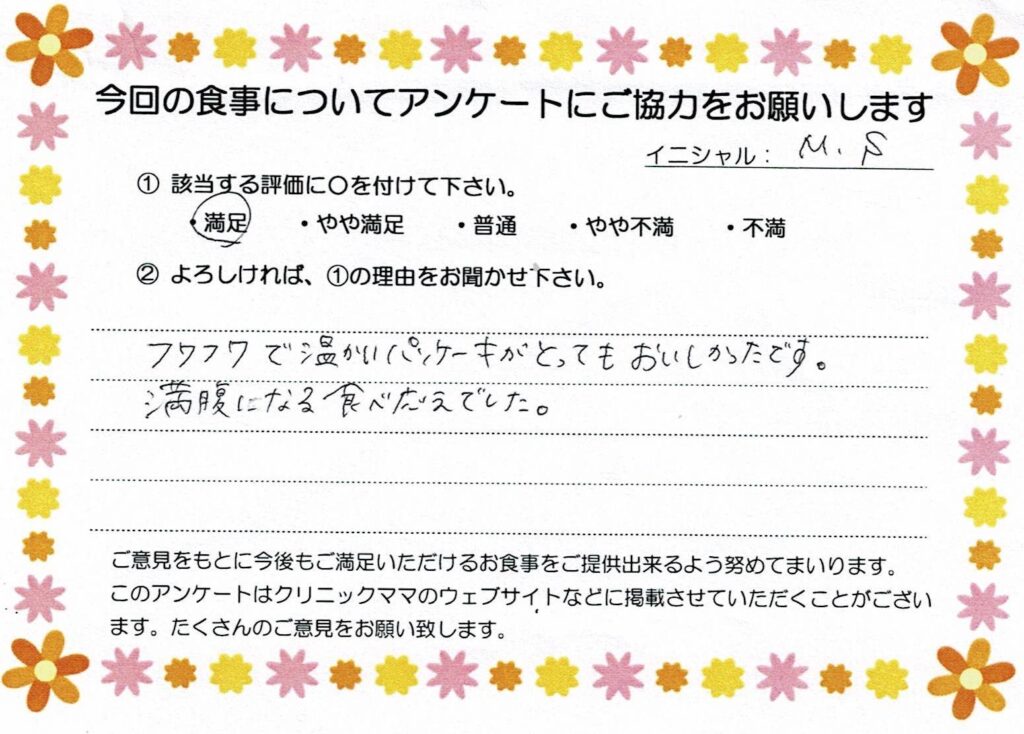 今回の食事についてアンケートにご協力をお願いします
イニシャル： M. S
① 該当する評価に〇を付けて下さい。
・満足 ・やや満足 ・普通 ・やや不満 ・不満
② よろしければ、①の理由をお聞かせ下さい。
フワフワで温かいパンケーキがとってもおいしかったです。
満腹になる食べ応えでした。
ご意見をもとに今後もご満足いただけるお食事をご提供出来るよう努めてまいります。
このアンケートはクリニックママのウェブサイトなどに掲載させていただくことがござい
ます。たくさんのご意見をお願い致します。